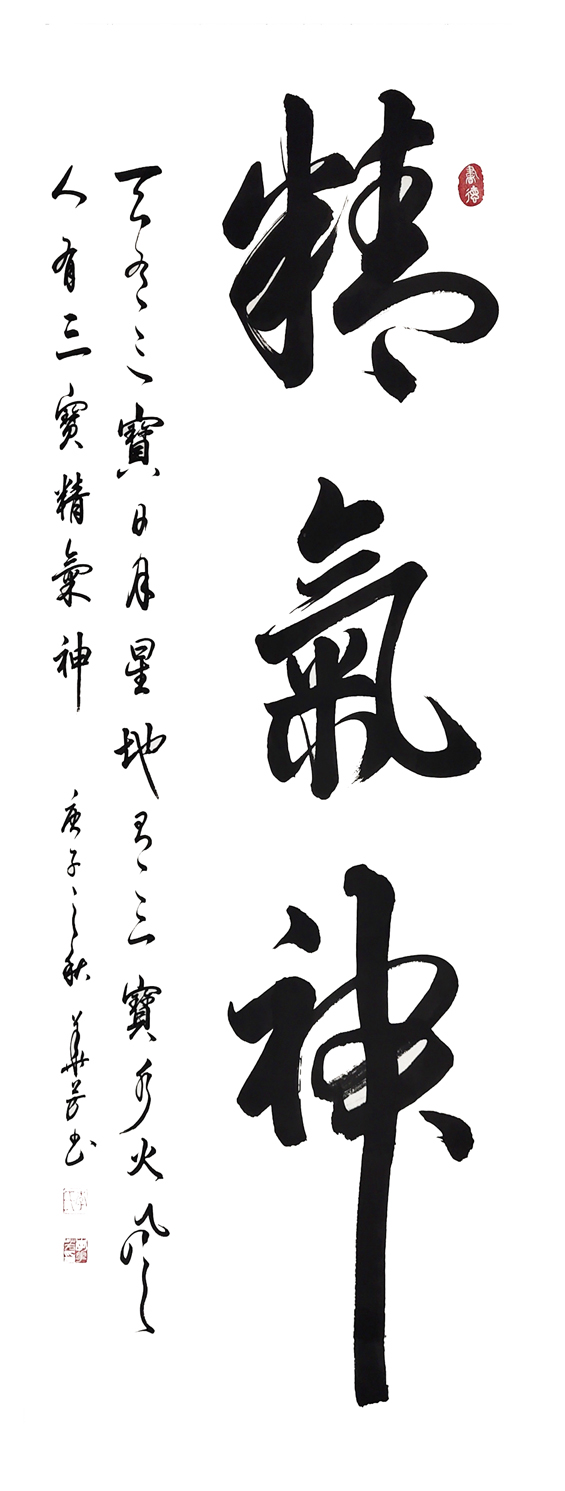 精氣神
天有三寶日月星地有三寶水火風
人有三寶精氣神 庚子之秋 華芳书
書德